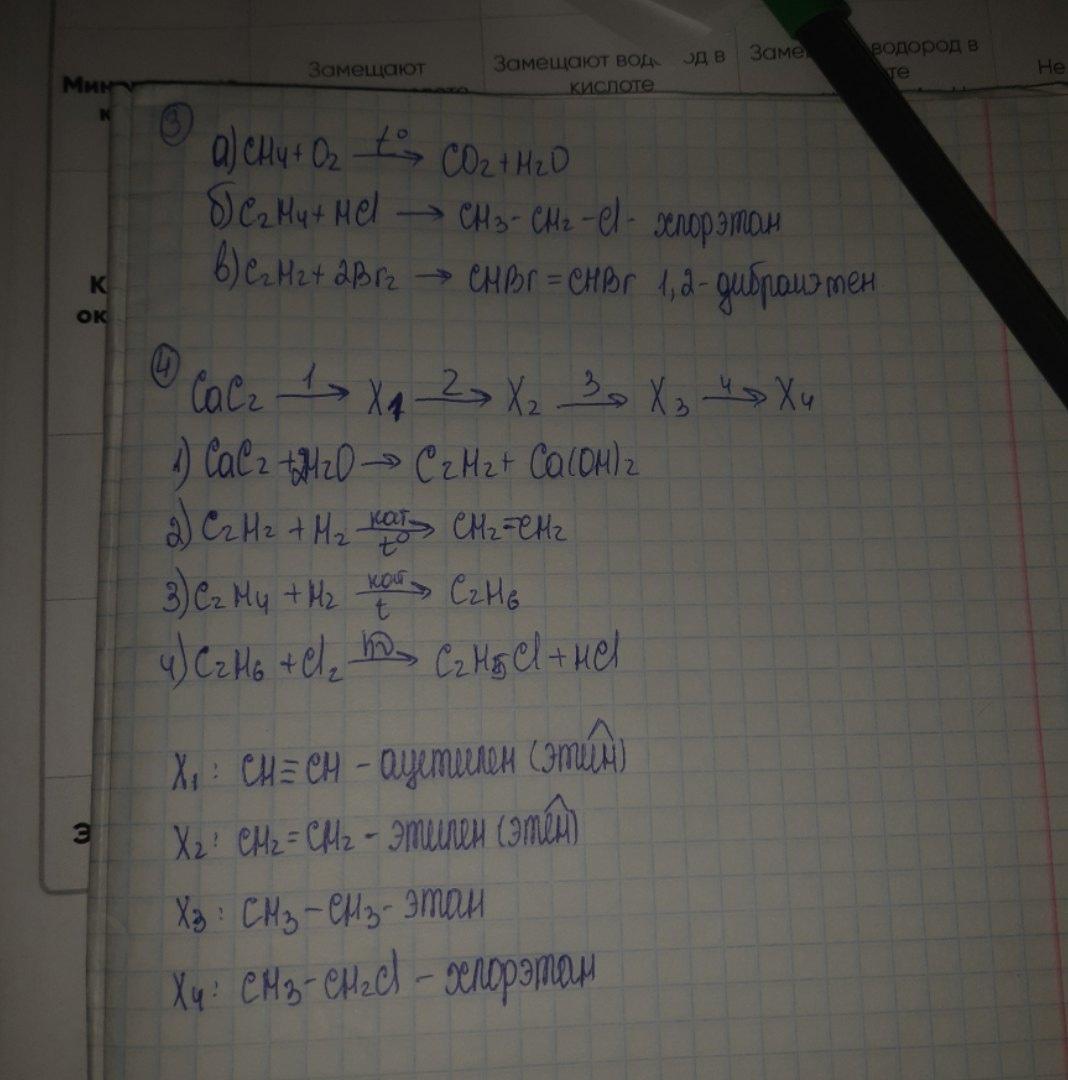 Замещают
Замещают вод
од в
кислоте
водород в
Не
К
ок
Э
3
а) CH4 + O2 t° → CO2 + H2O
б) C2H4 + HCl → CH3 - CH2 - Cl - хлорэтан
в) C2H2 + 2Br2 → CHBr = CHBr 1,2 - дибромэтен
4
CaC2 1→ X1 2→ X2 3→ X3 4→ X4
1) CaC2 + 2H2O → C2H2 + Ca(OH)2
2) C2H2 + H2 кат t° → CH2=CH2
3) C2H4 + H2 кат t → C2H6
4) C2H6 + Cl2 hν → C2H5Cl + HCl
X1: CH≡CH - ацетилен (этин)
X2: CH2 = CH2 - этилен (этен)
X3: CH3 - CH3 - этан
X4: CH3 - CH2Cl - хлорэтан